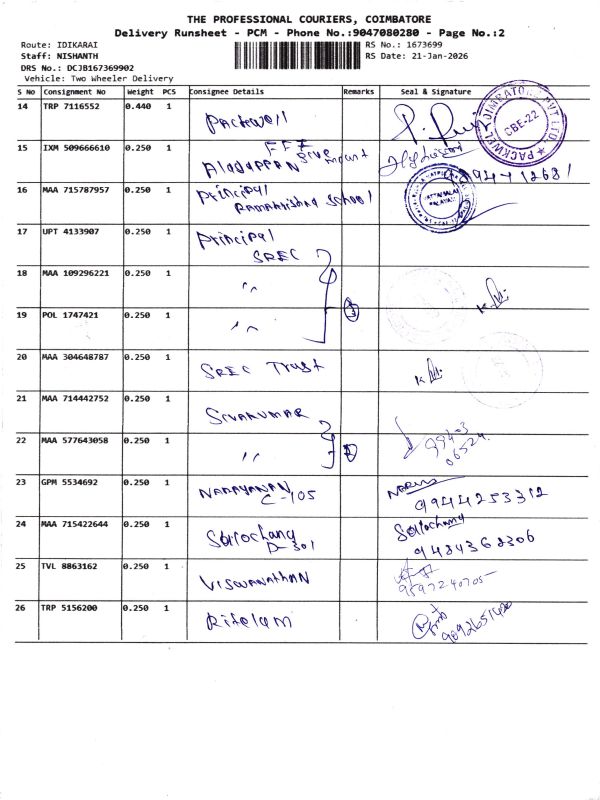 THE PROFESSIONAL COURIERS, COIMBATORE
Delivery Runsheet - PCM - Phone No.:9047080280 - Page No.:2
Route: IDIKARAI
RS No.: 1673699
Staff: NISHANTH
RS Date: 21-Jan-2026
DRS No.: DCJB167369902
Vehicle: Two Wheeler Delivery
S No Consignment No Weight PCS Consignee Details Remarks Seal & Signature
14 TRP 7116552 0.440 1 Packwell
PACKWEL COIMBATORE PVT LTD. CBE-22
15 IXM 509666610 0.250 1 Alagappan
16 MAA 715787957 0.250 1 Principal
Ramakrishna School
17 UPT 4133907 0.250 1 Principal
SREC
18 MAA 109296221 0.250 1 "
19 POL 1747421 0.250 1 " 3
20 MAA 304648787 0.250 1 SREC Trust
21 MAA 714442752 0.250 1 Sivakumar
99403
06524
22 MAA 577643058 0.250 1 " 2
23 GPM 5534692 0.250 1 Narayanan
C-105
9944253312
24 MAA 715422644 0.250 1 Sarochana Sarochana
D-301
9484368306
25 TVL 8863162 0.250 1 Viswanathan
9597240705
26 TRP 5156200 0.250 1